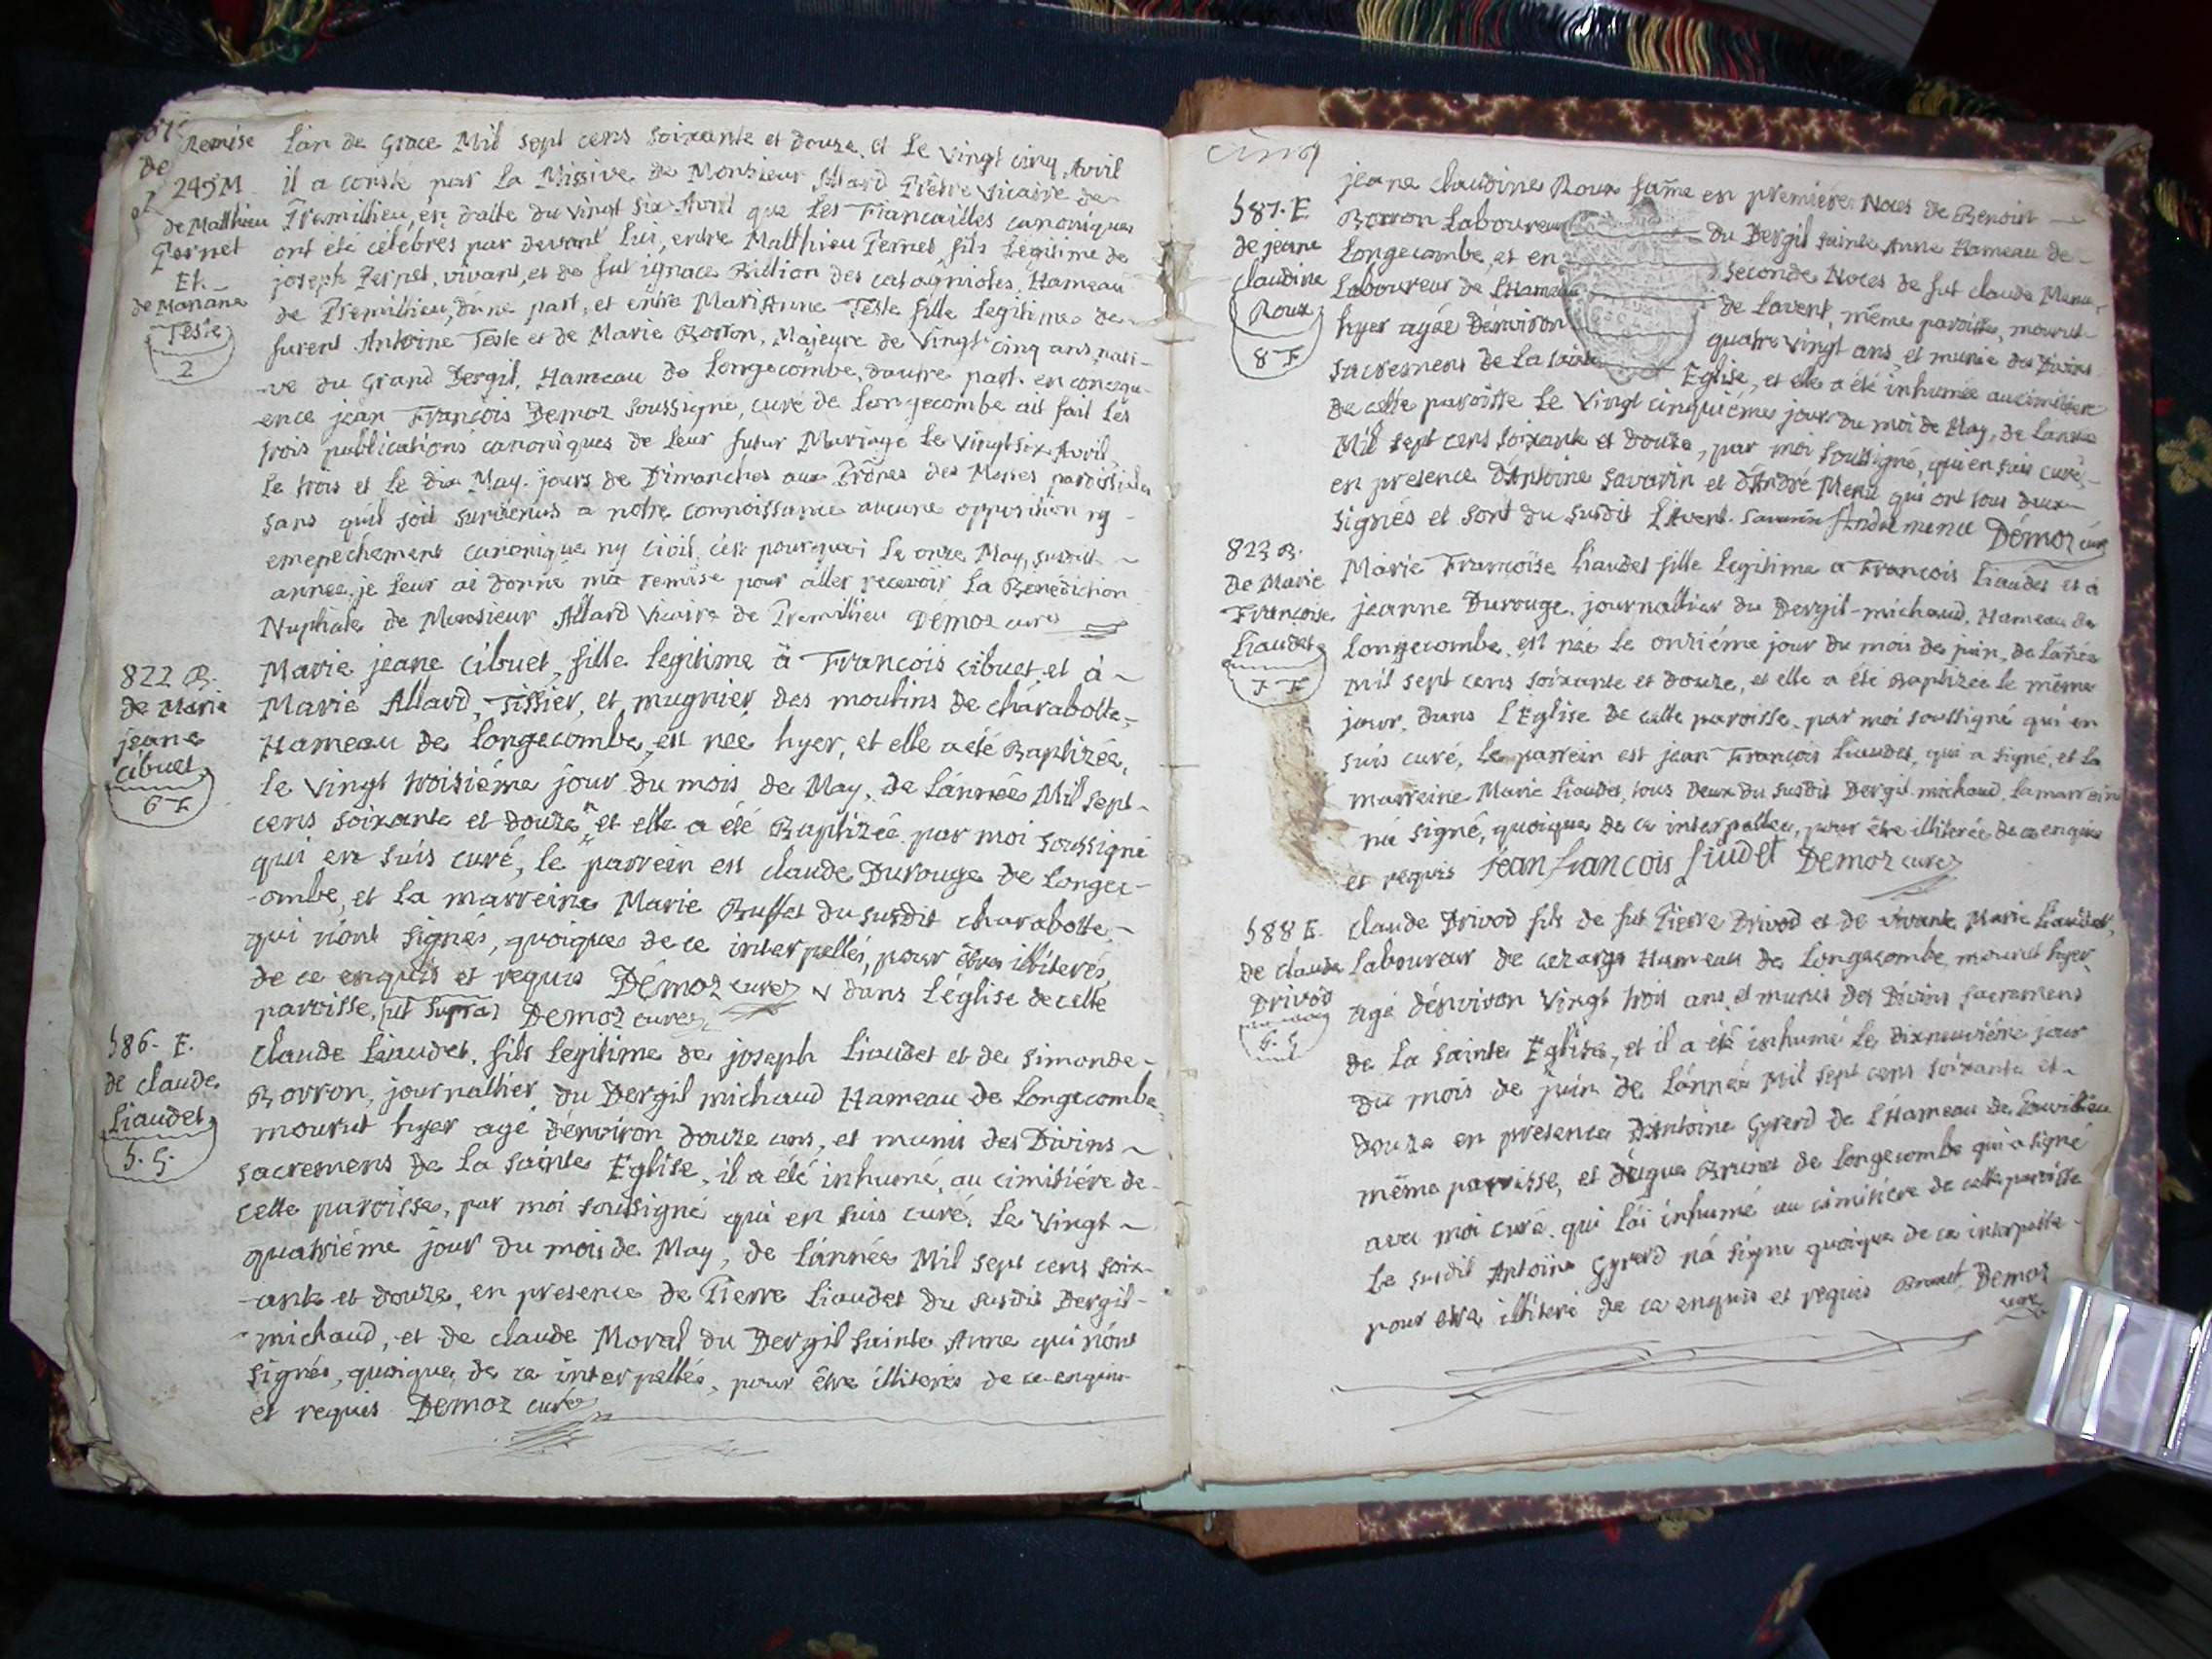 Remise
De
249 M
de Matthieu
Pernet
Et
de Mariane
Teste
2
Lan de Grace Mil sept cens soixante et douze, et Le vingt cinq Avril
il a consté par La Missive de Monsieur Allard Prètre vicaire de
Premillieu, en datte du vingt six Avril que Les Fiancailles canoniques
ont été célébrés par devant Lui, entre Matthieu Pernet fils Légitime de
joseph Pernet, vivant, et de fut ignace Billion des catagnioles, Hameau
de Premillieu, dune part, et entre MariAnne Teste fille Legitime de
furent Antoine Teste et de Marie Borron, Majeure de vingt cinq ans nati-
-ve du Grand Dergil, Hameau de Longecombe, dautre part. en consequ-
ence jean François Demoz soussigné, curé de Longecombe ait fait Les
trois publications canoniques de Leur futur Mariage Le vingt six Avril
Le trois et Le dix May. jours de Dimanches aux Prônes des Messes paroissiales
sans quil soit survenus a notre connoissance aucune opposition ny
emepechement canonique ny civil, cest pourquoi Le onze May, susditt
année, je Leur ai donné ma remise pour aller recevoir La Benediction
Nuphiale de Monsieur Allard Vicaire de Premillieu Demoz curé
822 B.
de Marie
jeane
cibuet
6 F
Marie jeane cibuet, fille legitime à François cibuet et à
Marie Allard, Tissier, et mugnier, des moulins de charabotte,
Hameau de Longecombe, est née hyer, et elle a été Baptizée,
Le vingt troisiéme jour du mois de May, de Lánnée Mil sept
cens soixante et douze, et elle a été Baptizée par moi soussigné
qui en suis curé, le parrein est claude Durouge de Longec-
-ombe, et La marreine Marie Buffet du susdit charabotte
qui nónt signés, quoique de ce interpellés, pour être illiterés
de ce enquis et requis Démoz curé dans Léglise de cette
paroisse, ut supra Demoz curé
586. E.
de claude
Liaudet
5. G.
Claude Liaudet, fils legitime de joseph Liaudet et de simonde
Borron, journallier du Dergil michaud Hameau de Longecombe
mourut hyer agé dénviron douze ans, et munis des Divins
sacremens de La sainte Eglise, il a été inhumé, au cimitiére de
cette paroisse, par moi sousigné qui en suis curé, Le vingt
quatriéme jour du mois de May, de Lánnée Mil sept cens soix-
-ante et douze, en presence de Pierre Liaudet du susdit Dergil-
-michaud, et de claude Moral du Dergil sainte Anne qui nónt
signés, quoique de ce interpellés, pour être illiterés de ce enquis
et requis Démoz curé
cinq
587. E
de jeane
claudine
Roux
8 F
jeane claudine Roux fame en premiére Noces de Benoit
Borron Laboureur du Dergil sainte Anne Hameau de
Longecombe, et en seconde Noces de fut claude
Laboureur de LHameau de Lavent, même paroisse, mourut
hyer agée dénviron quatre vingt ans, et munie des Divins
sacremens de La sainte Eglise, et elle a été inhumée au cimitiére
de cette paroisse Le vingt cinquiéme jour du moi de May, de Lannée
Mil sept cens soixante et douze, par moi soussigné, qui en suis curé,
en presence dAntoine savarin et dAndré Menu qui ont tous deux
signés et sont du susdit LAvent. savarin Andre menu Démoz curé
823 B.
De Marie
Françoise
Liaudet
7 F
Marie Françoise Liaudet fille legitime a François Liaudet et à
jeanne Durouge, journallier du Dergil-michaud, Hameau de
Longecombe, est née le onziéme jour du mois de juin, de Lánée
mil sept cens soixante et douze, et elle a été Baptizée le même
jour, dans LEglise de cette paroisse, par moi soussigné qui en
suis curé, Le parrein est jean François Liaudet, qui a signé, et La
marreine Marie Liaudet, tous deux du susdit Dergil michaud, La marreine
ná signé, quoique de ce interpellée, pour être illiterée de ce enquise
et requis Jean francois Liudet Demoz curé
588 E.
de claude
Drivod
6. G
Claude Drivod fils de fut Pierre Drivod et de vivante Marie Liaudet,
Laboureur de cezarge Hameau de Longecombe mourut hyer
agé dénviron vingt trois ans, et munis des Divins sacremens
de La sainte Eglise, et il a été inhumé Le dixneuviéme jour
du mois de juin de Lánnée Mil sept cens soixante et
douze en presence DAntoine Gyrerd de LHameau de
même parroisse, et Brunet de Longecombe qui a signé
avec moi curé, qui Lái inhumé au cimitiére de cette paroisse
Le susdit Antoine Gyrerd ná signé quoique de ce interpellé
pour être illiteré de ce enquis et requis Brunet, Demoz
curé